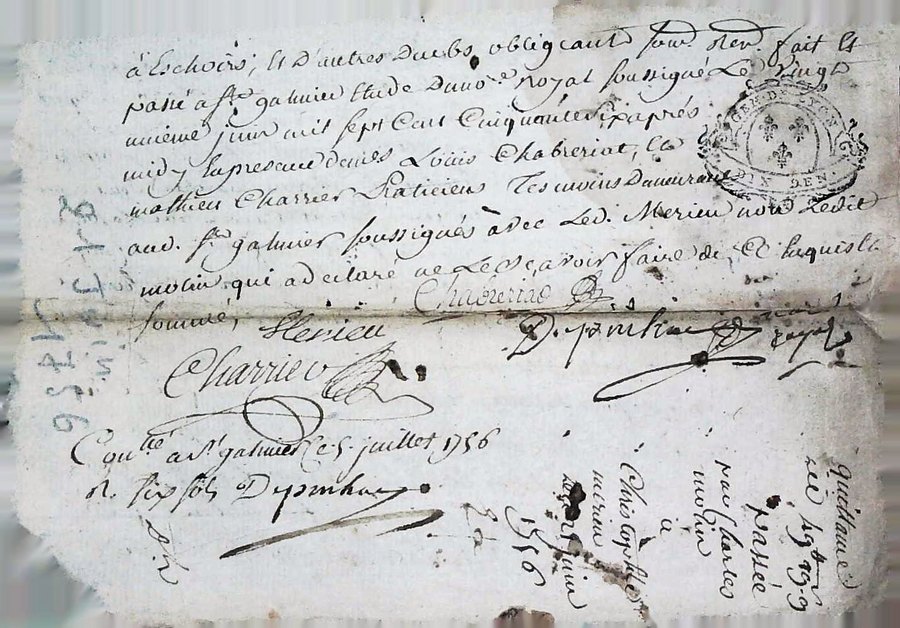 à Eschoirs, Et D'autres Deubs, obligeant soum. Ren. fait Et
passé a St. galmier Etude Du no.re Royal soussigné Le Vingt
unième juin mil sept Cent Cinquante six après
midy En presence de mes Louis Chabreriat, Et
mathieu Charrier Praticiens Tesmoins Demeurant
aud. St. galmier soussignés avec Led. Merieu non Ledit
molin qui a déclaré ne Le sçavoir faire de ce Enquis Et
sommé,
Merieu
Chabreriat
Charrier
Depinhac
no.re royal
Con.llé a St galmier Ce 5. juillet 1756
R. six sols Depinhac
Quittance
passée
par Charles
molin
a
Christophle
merieu
juin
1756
21 juin
1756
GEN. DE LYON
DIX DEN.